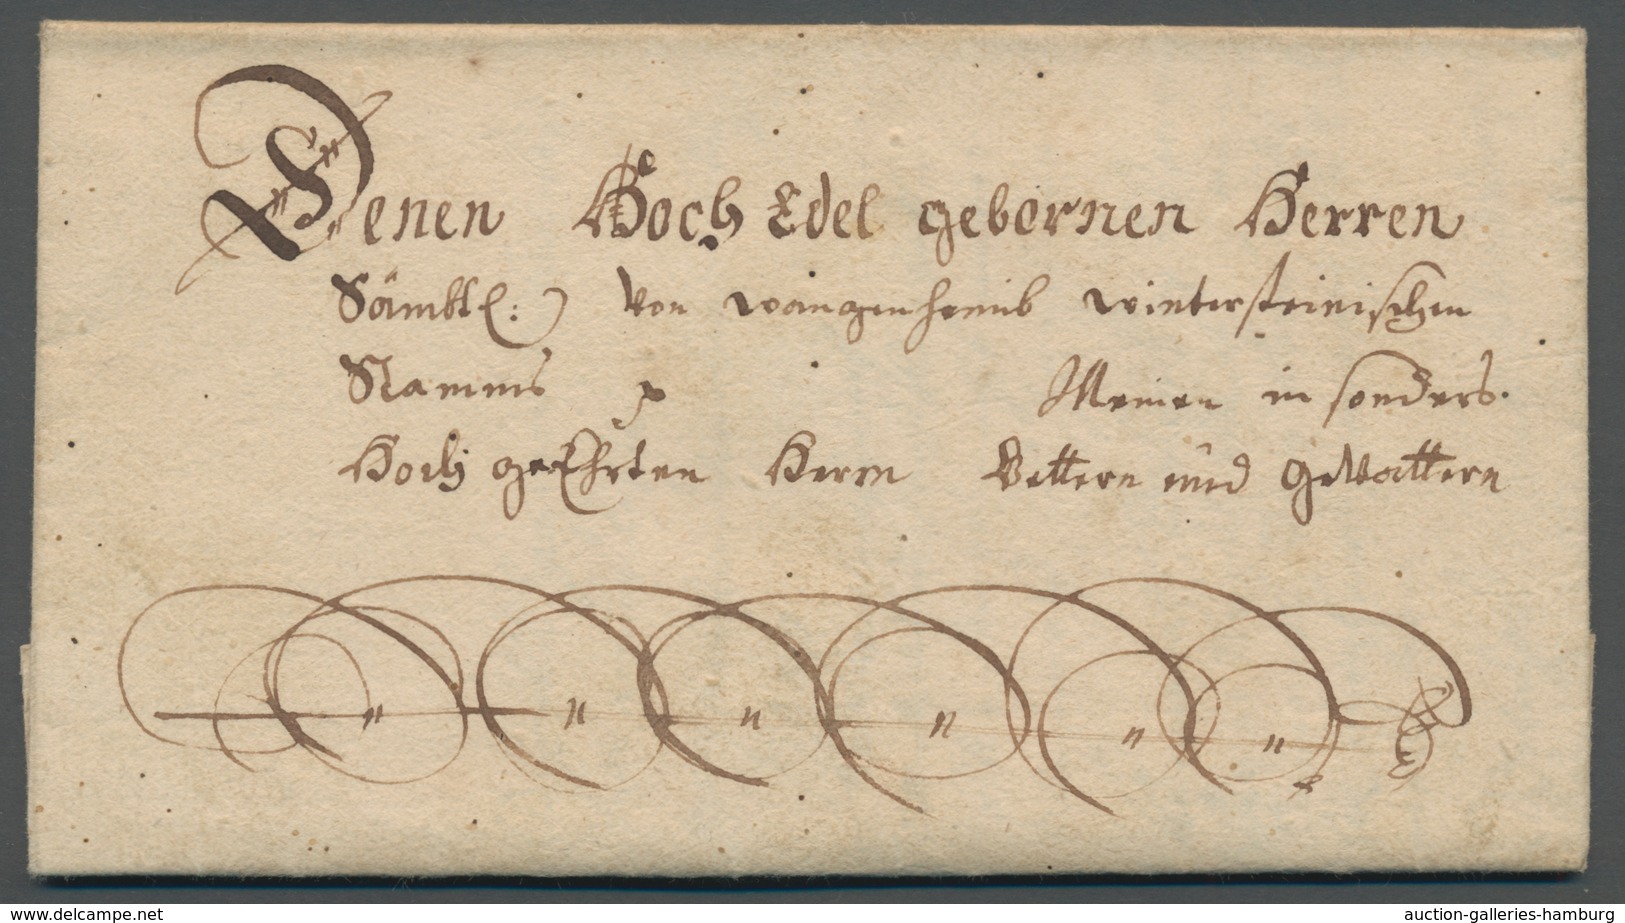 Denen Hoch Edel gebornen Herren
Sämbtl: von Wangenheimb Wintersteinischen
Stamms Meinen in sonders.
Hoch geEhrten Herrn Vettern und Gevattern
www.delcampe.net
auction-galleries-hamburg